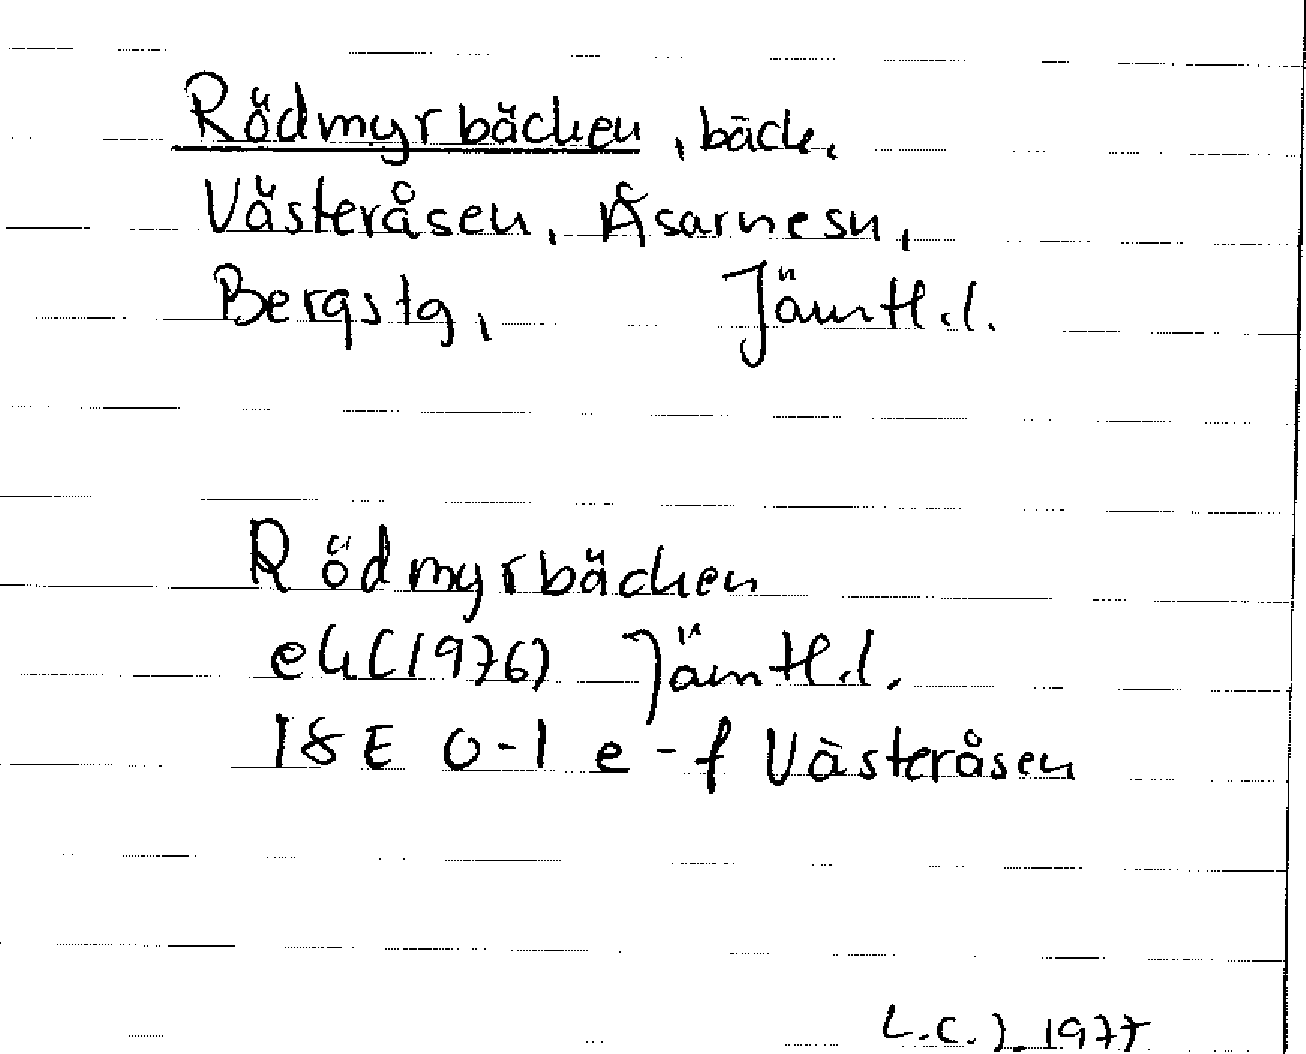 Rödmyrbäcken, bäck.
Västeråsen, Åsarnesn,
Bergstg, Jämtl.l.
Rödmyrbäcken
ek(1976) Jämtl.l.
18E 0-1 e-f Västeråsen
L.C.J. 1977